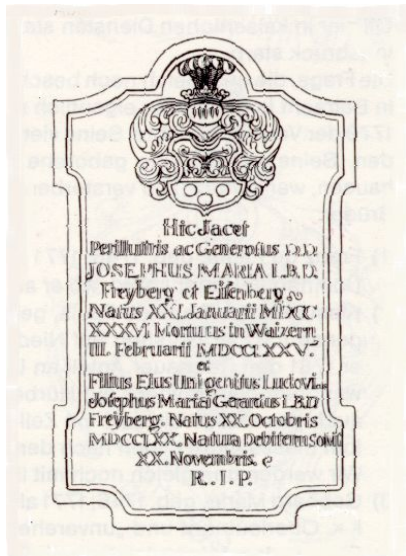 Hic Jacet
Perillustris ac Generosus D.D.
JOSEPHUS MARIA L.B.D.
Freyberg et Eisenberg
Natus XX. Januarii MDCC
XXXXVI. Mortuus in Waizern
III. Februarii MDCCLXXV.
et
Filius Ejus Unigenitus Ludovi..
Josephus Maria Gerardus L.B.D
Freyberg. Natus XX. Octobris
MDCCLXX. Natura Debitem Solvit
XX. Novembris.
R. I. P.